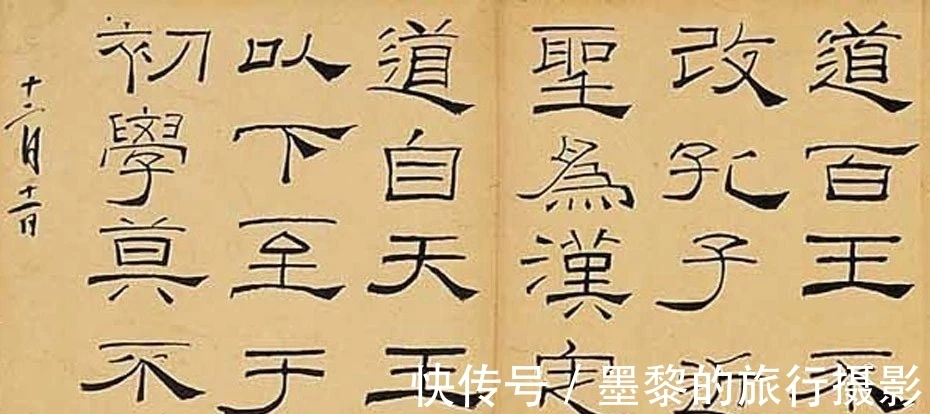 道百王不
改孔子近
聖為漢定
道自天王
以下至于
初學莫不
十二月
快传号 / 墨黎的旅行摄影